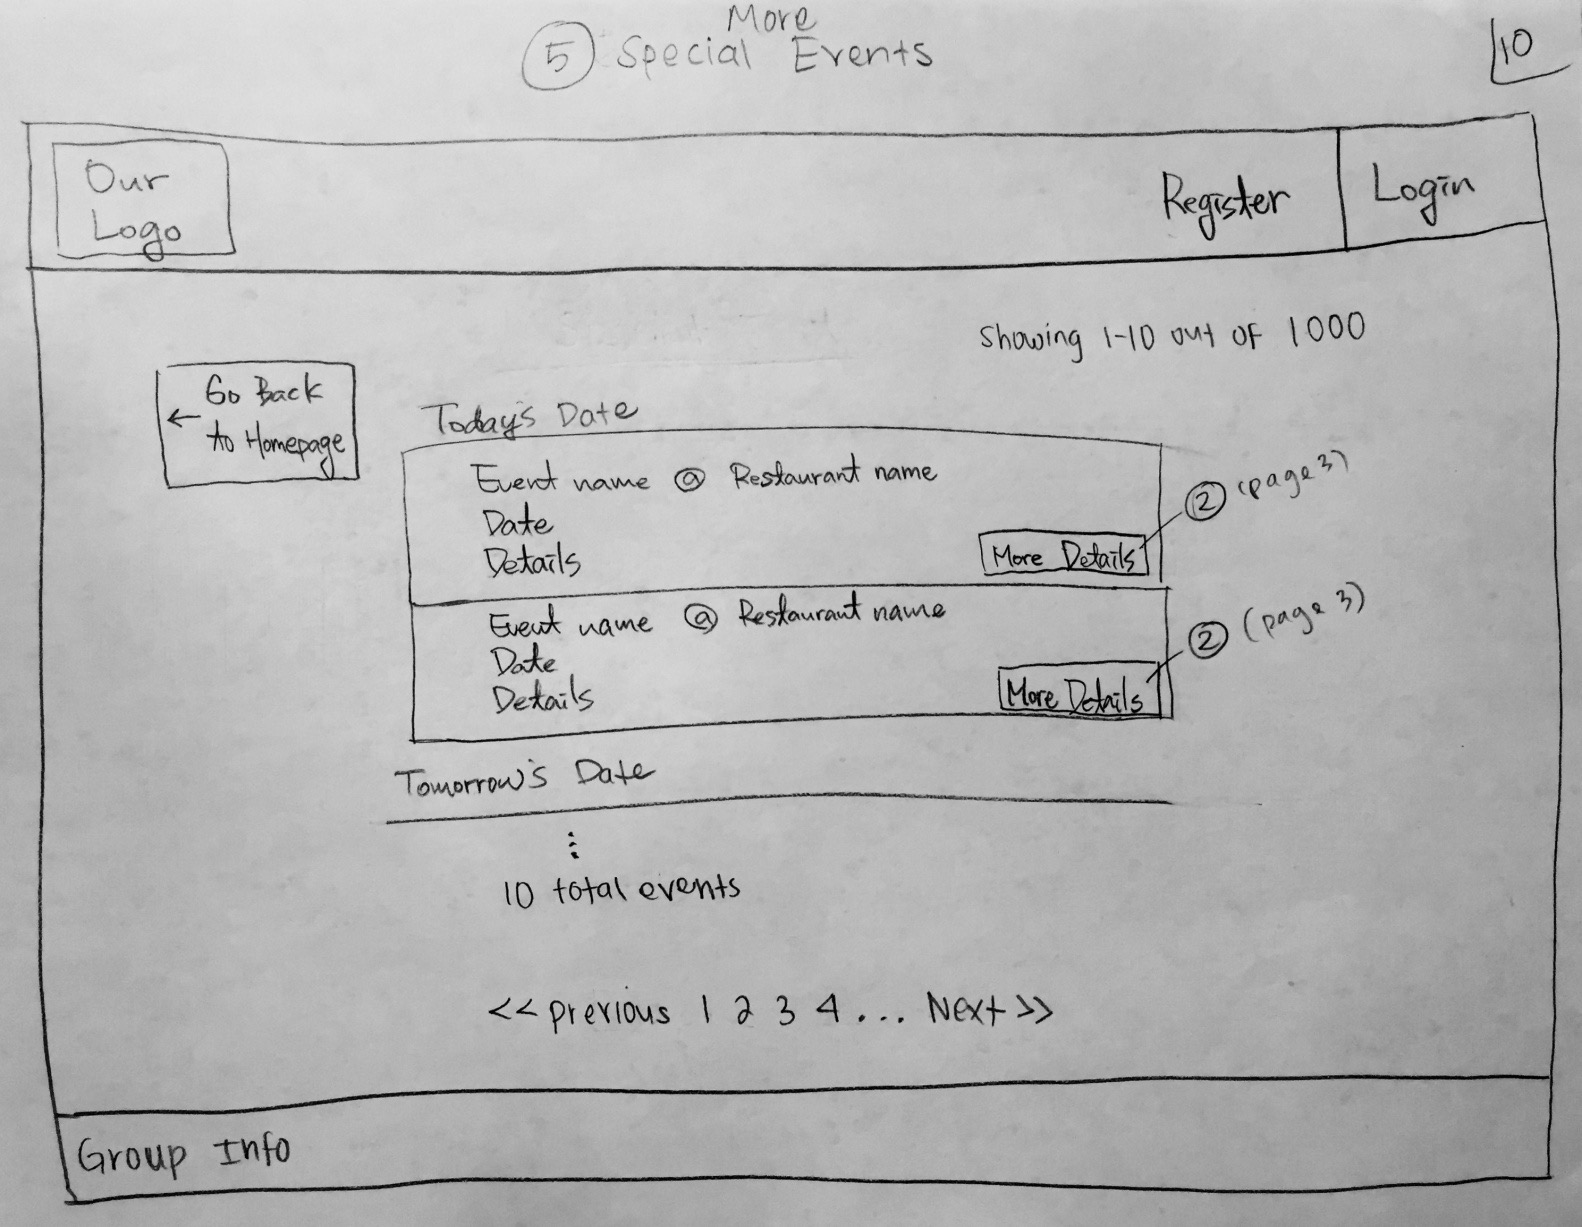 More
⑤ Special Events
10
Our
Logo
Register
Login
Showing 1-10 out of 1000
← Go Back
to Homepage
Today's Date
Event name @ Restaurant name
Date
Details
More Details
② (page 3)
Event name @ Restaurant name
Date
Details
More Details
② (page 3)
Tomorrow's Date
⋮
10 total events
<< previous 1 2 3 4 ... Next >>
Group Info